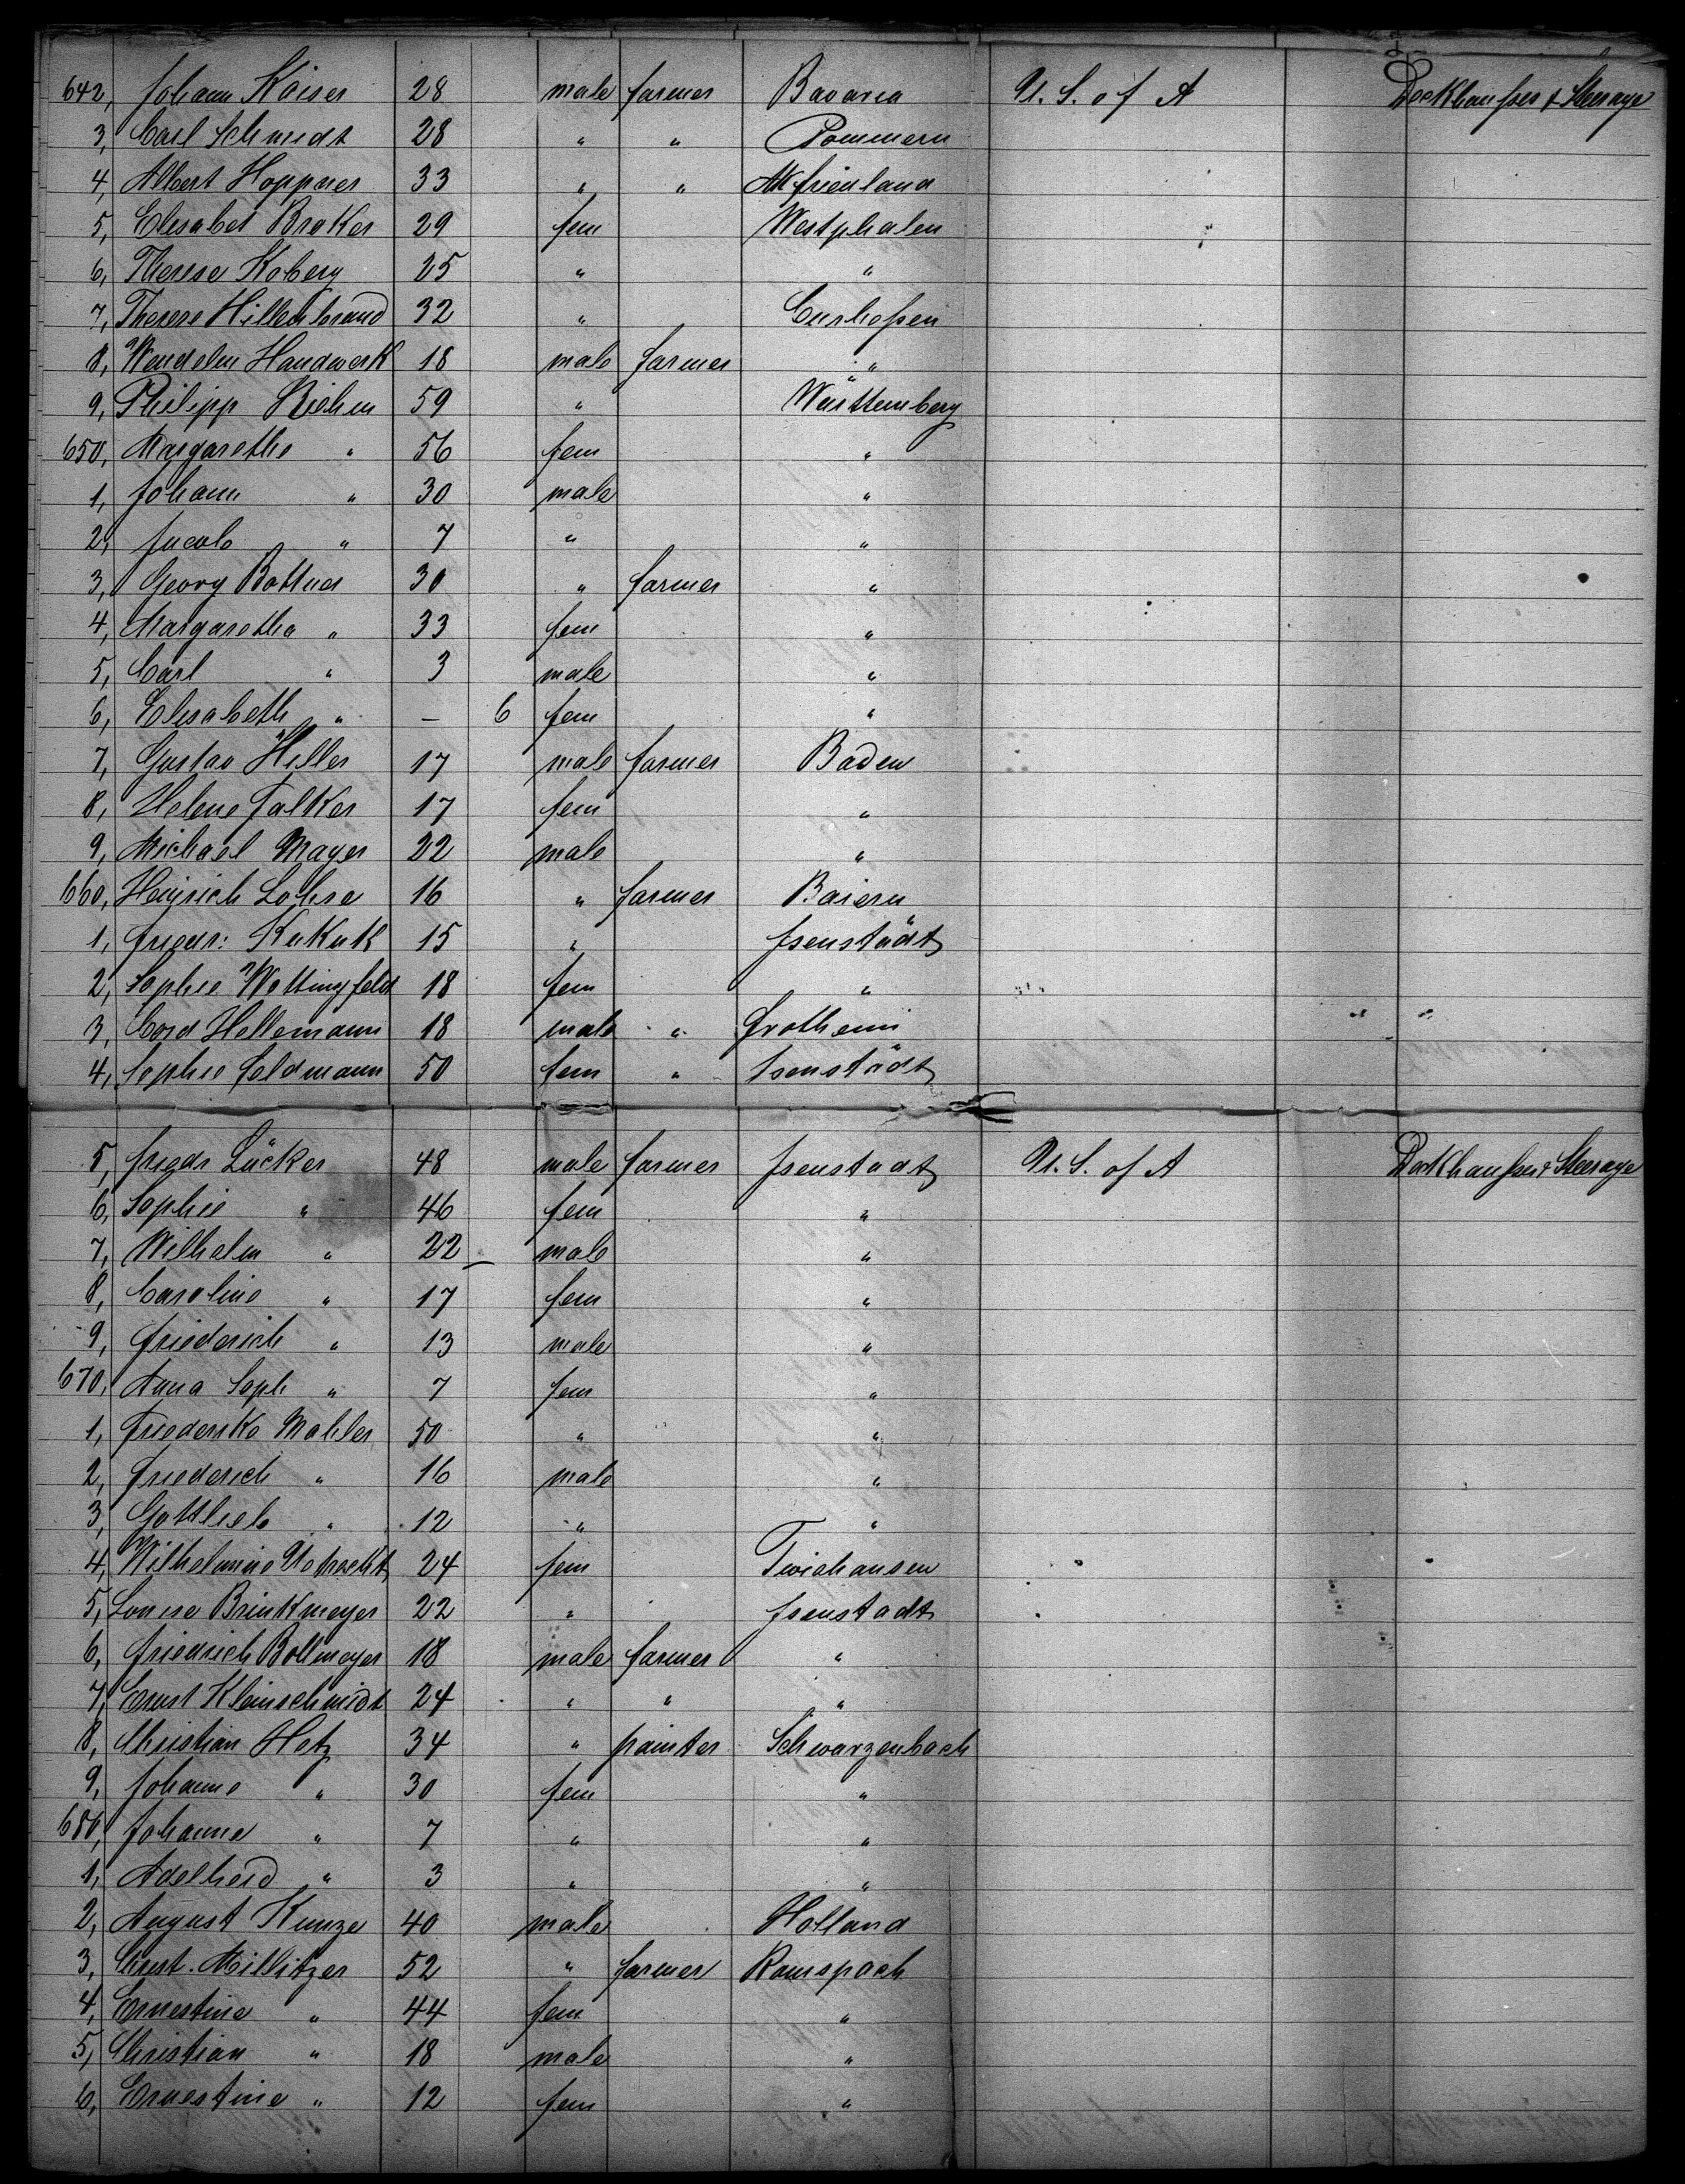 642, Johann Kaiser 28 male farmer Bavaria U. S. of A Deckhauses & Steerage
3, Carl Schmidt 28 " " Pommern
4, Albert Hoppner 33 " "
5, Elisabet Braker 29 fem Westphalen
6, Therese Koberg 25 " "
7, Therese Hillenbrand 32 " Curhessen
8, Wendelin Handwerk 18 male farmer "
9, Philipp Riehm 59 " Württemberg
650, Margarethe " 56 fem "
1, Johann " 30 male "
2, Jacob " 7 " "
3, Georg Bottner 30 " farmer "
4, Margaretha " 33 fem "
5, Carl " 3 male "
6, Elisabeth " — 6 fem "
7, Gustav Hiller 17 male farmer Baden
8, Helene Falker 17 fem "
9, Michael Mayer 22 male "
660, Heinrich Lohse 16 " farmer Baiern
1, Friedr: Kukuk 15 " Isenstädt
2, Sophie Wottingfeld 18 fem "
3, Cord Hellemann 18 male " Frotheim
4, Sophie Feldmann 50 fem " Isenstädt
5, Friedr Lücker 48 male farmer Isenstadt U. S. of A Deckhauses & Steerage
6, Sophie " 46 fem "
7, Wilhelm " 22 male "
8, Caroline " 17 fem "
9, Friederich " 13 male "
670, Anna Soph " 7 fem "
1, Friederike Mahler 50 " "
2, Friederich " 16 male "
3, Gottlieb " 12 " "
4, Wilhelmine 24 fem Twiehausen
5, Louise Brinkmeyer 22 " Isenstadt
6, Friedrich Bollmeyer 18 male farmer "
7, Ernst Kleinschmidt 24 " " "
8, Christian Hetz 34 " painter Schwarzenbach
9, Johanne " 30 fem "
680, Johanna " 7 " "
1, Adelheid " 3 " "
2, August Kunze 40 male Holland
3, Christ. Millitzer 52 " farmer Ramspach
4, Ernestine " 44 fem "
5, Christian " 18 male "
6, Ernestine " 12 fem "